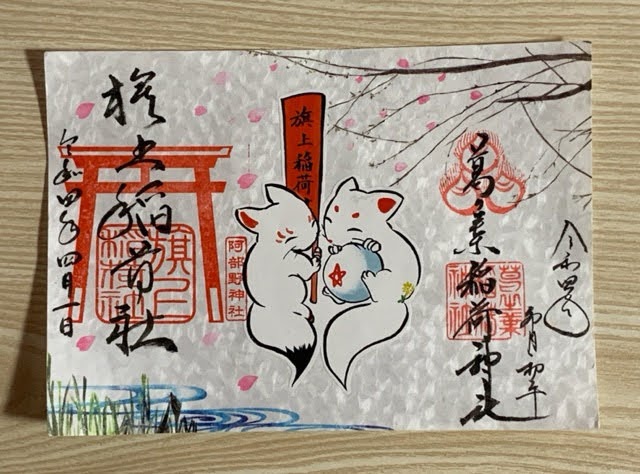 令和四年
卯月初午
葛之葉稲荷神社
旗上稲荷
阿部野神社
旗上稲荷社
旗上
稲荷社
令和四年四月一日